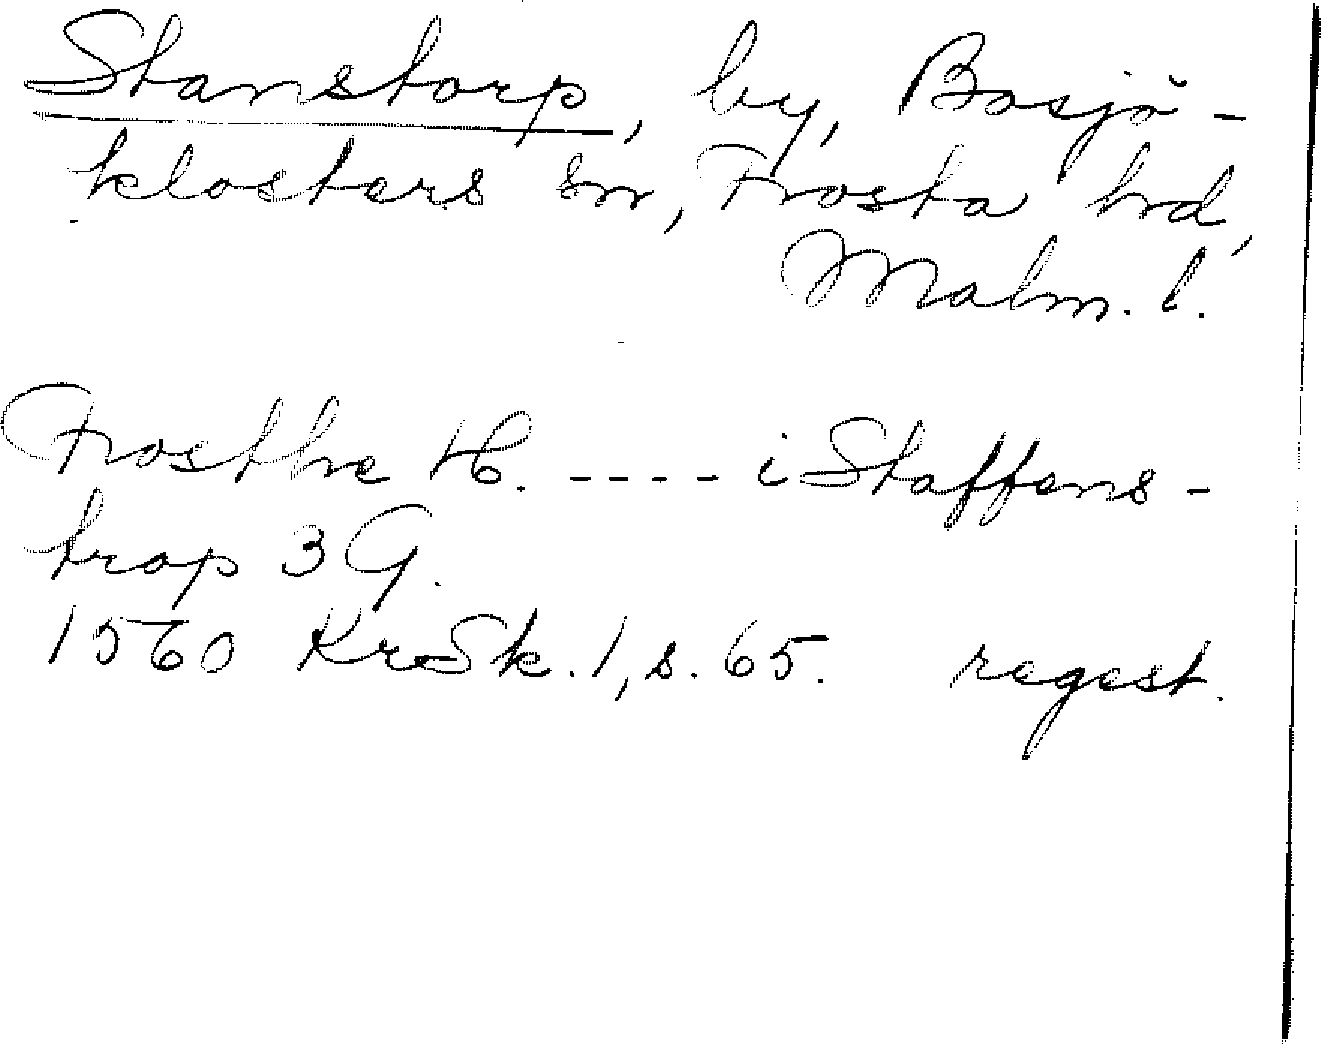 Stanstorp, by, Bosjö-
klosters sn, Frosta hrd,
Malm. l.
Frosthe H. ---- i Staffens-
trop 3 G.
1560 KrSk. 1, s. 65. regest.